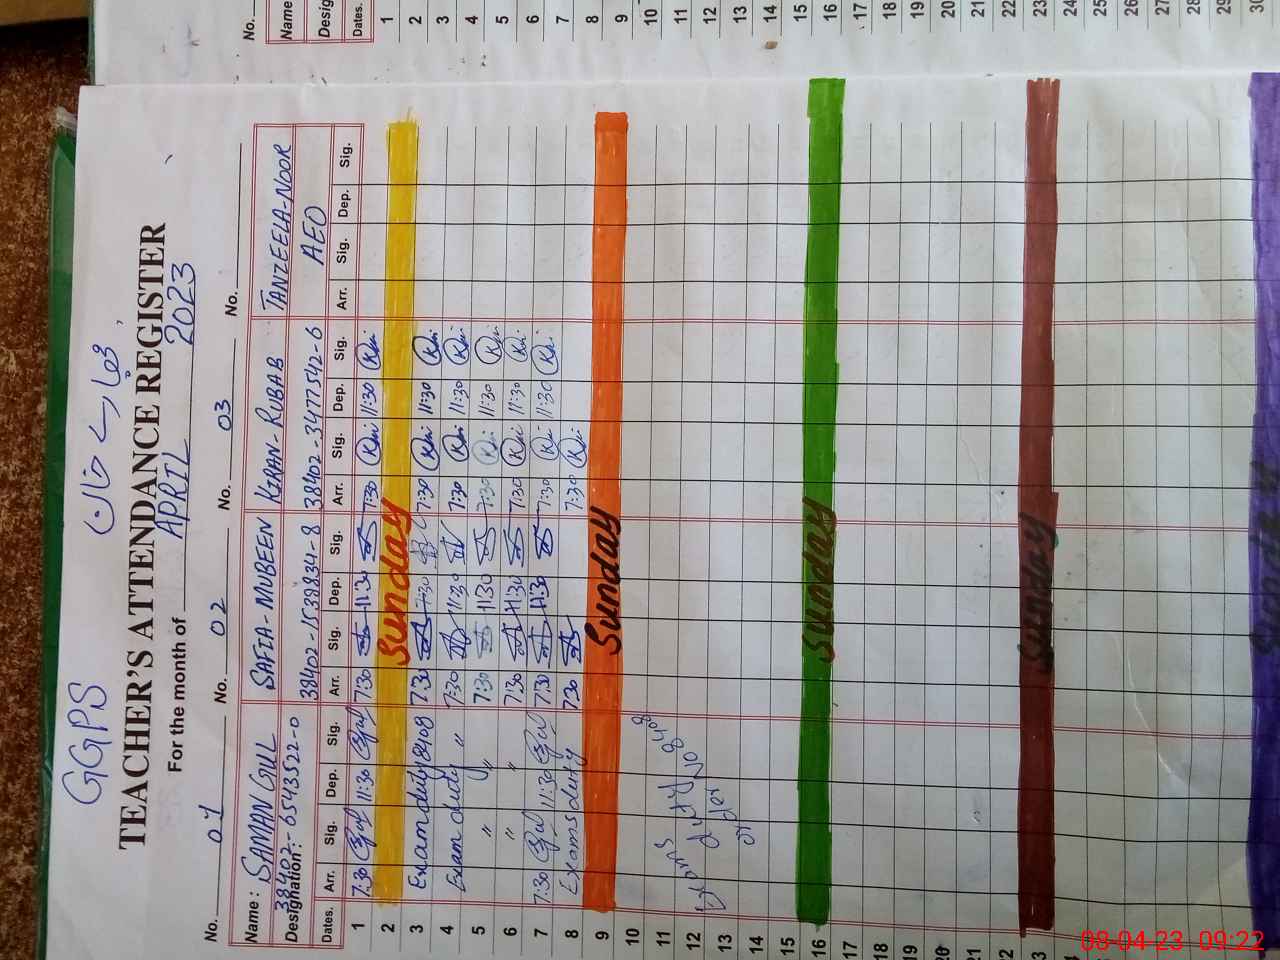 GGPS
TEACHER'S ATTENDANCE REGISTER
For the month of APRIL 2023
No. 01 No. 02 No. 03 No.
Name: SAMAN GUL SAFIA-MUBEEN KIRAN-RUBAB TANZEELA-NOOR
Designation: 38402-6543522-0 38402-1539834-8 38402-3477542-6 AEO
Dates. Arr. Sig. Dep. Sig. Arr. Sig. Dep. Sig. Arr. Sig. Dep. Sig. Arr. Sig. Dep. Sig.
1 7:30 Gul 11:30 Gul 7:30 11:30 7:30 11:30
2 Sunday
3 Exam duty 8408 7:30 7:30 7:30 11:30
4 Exam duty " 7:30 11:30 7:30 11:30
5 " " 7:30 11:30 7:30 11:30
6 " " 7:30 11:30 7:30 11:30
7 7:30 Gul 11:30 Gul 7:30 11:30 7:30 11:30
8 Exams duty 7:30 7:30
9 Sunday
10
11
12 Exams duty No 8408
13 order
14
15
16 Sunday
17
18
19
20
21
22
23 Sunday
24
Sunday
No.
Name
Desig
Dates.
1
2
3
4
5
6
7
8
9
10
11
12
13
14
15
16
17
18
19
20
21
22
23
24
25
26
27
28
29
30
08-04-23 09:22